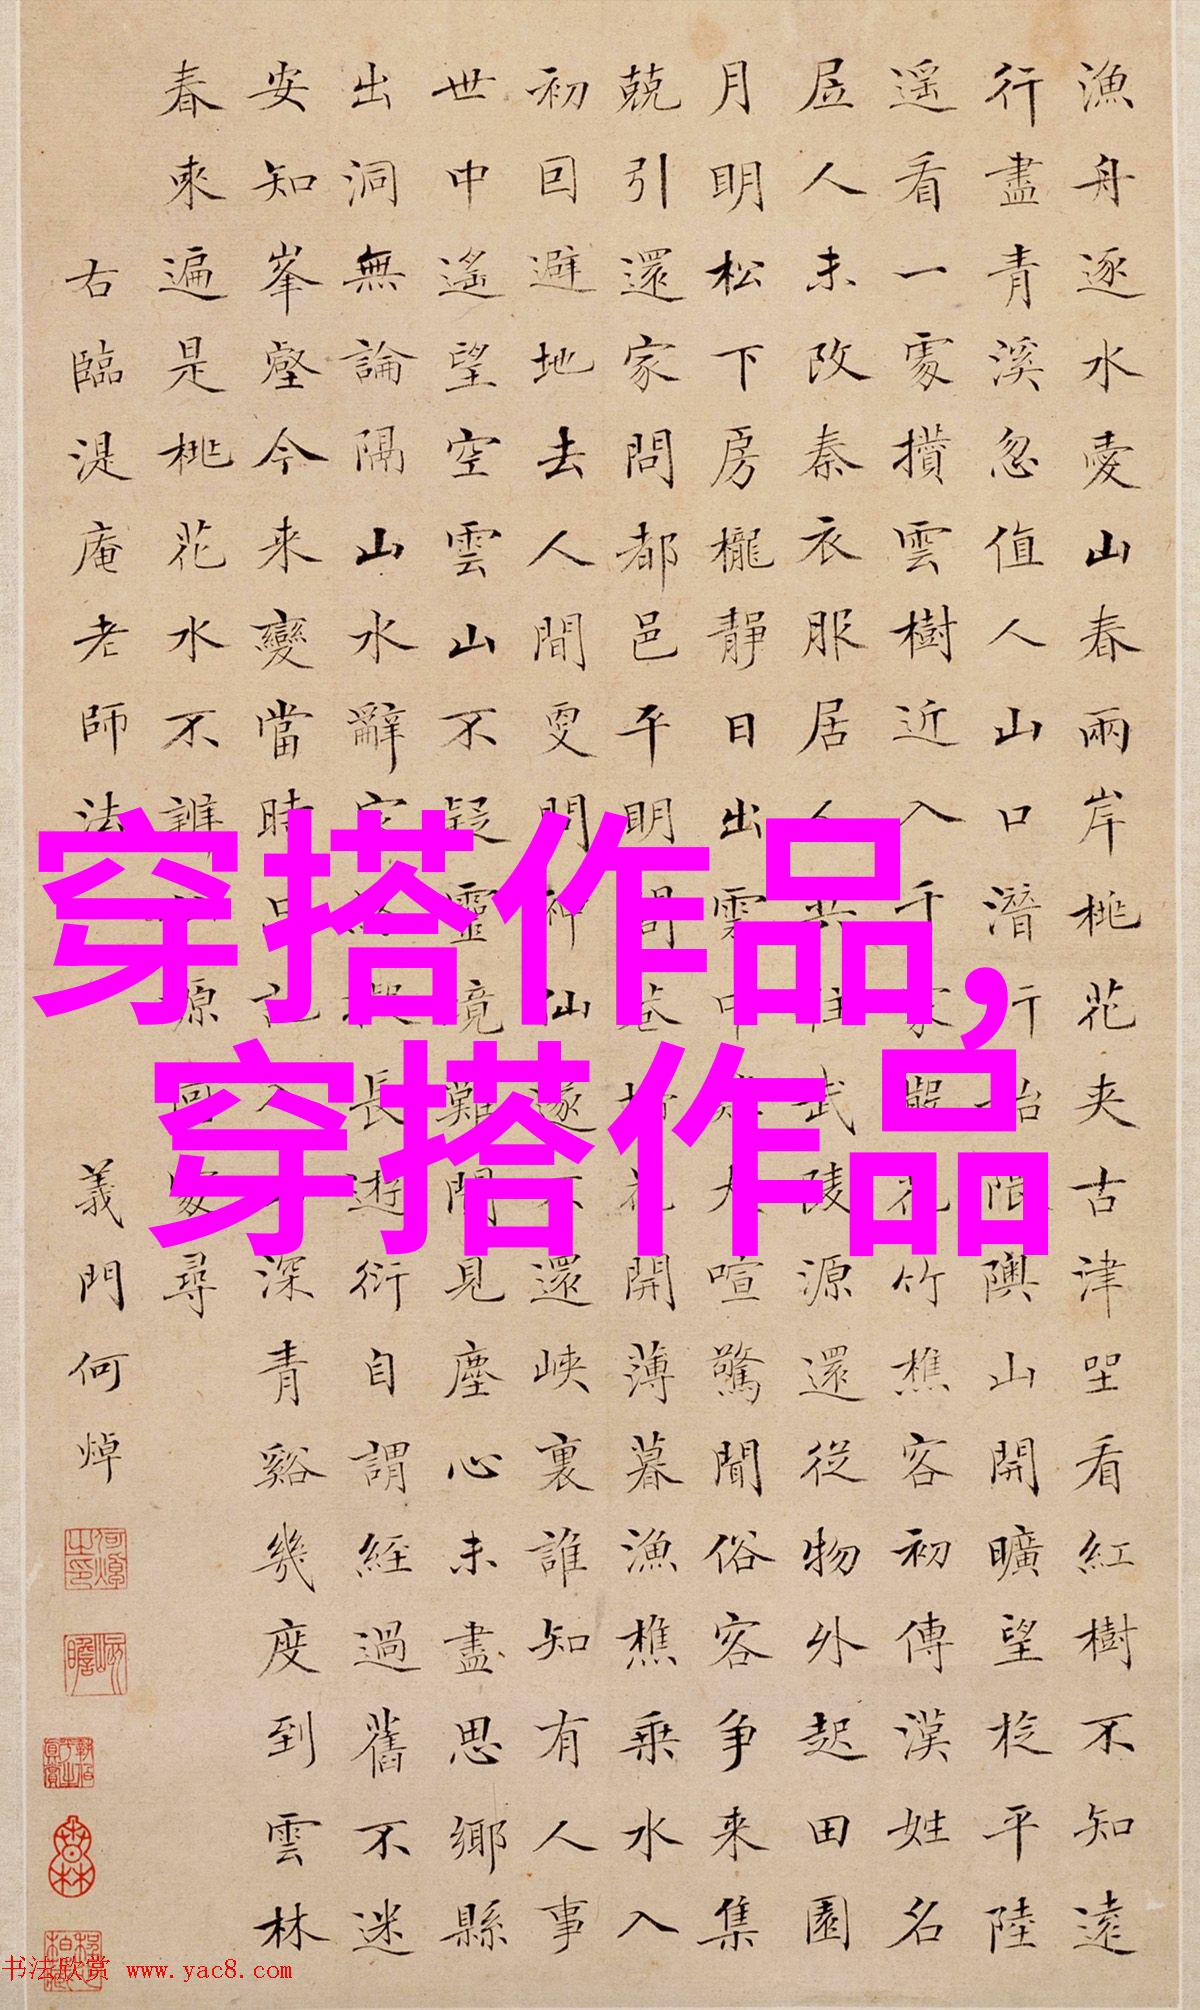 漁舟逐水愛山春兩岸桃花夾古津坐看紅樹不知遠
行盡青溪忽值人山口潛行始隈隩山開曠望旋平陸
遥看一處攢雲樹近入千家散花竹樵客初傳漢姓名
居人未改秦衣服居人共住武陵源還從物外起田園
月明松下房櫳靜日出雲中雞犬喧驚聞俗客爭來集
競引還家問都邑平明閭巷掃花開薄暮漁樵乘水入
初因避地去人間更問神仙遂不還峽裏誰知有人事
世中遙望空雲山不疑靈境難聞見塵心未盡思鄉縣
出洞無論隔山水辭家終擬長遊衍自謂經過舊不迷
安知峯壑今來變當時只記入山深青谿幾度到雲林
春來遍是桃花水不辨仙源何處尋
右臨湜庵老師法
義門何焯
穿搭作品,
穿搭作品
书法欣赏 www.yac8.com